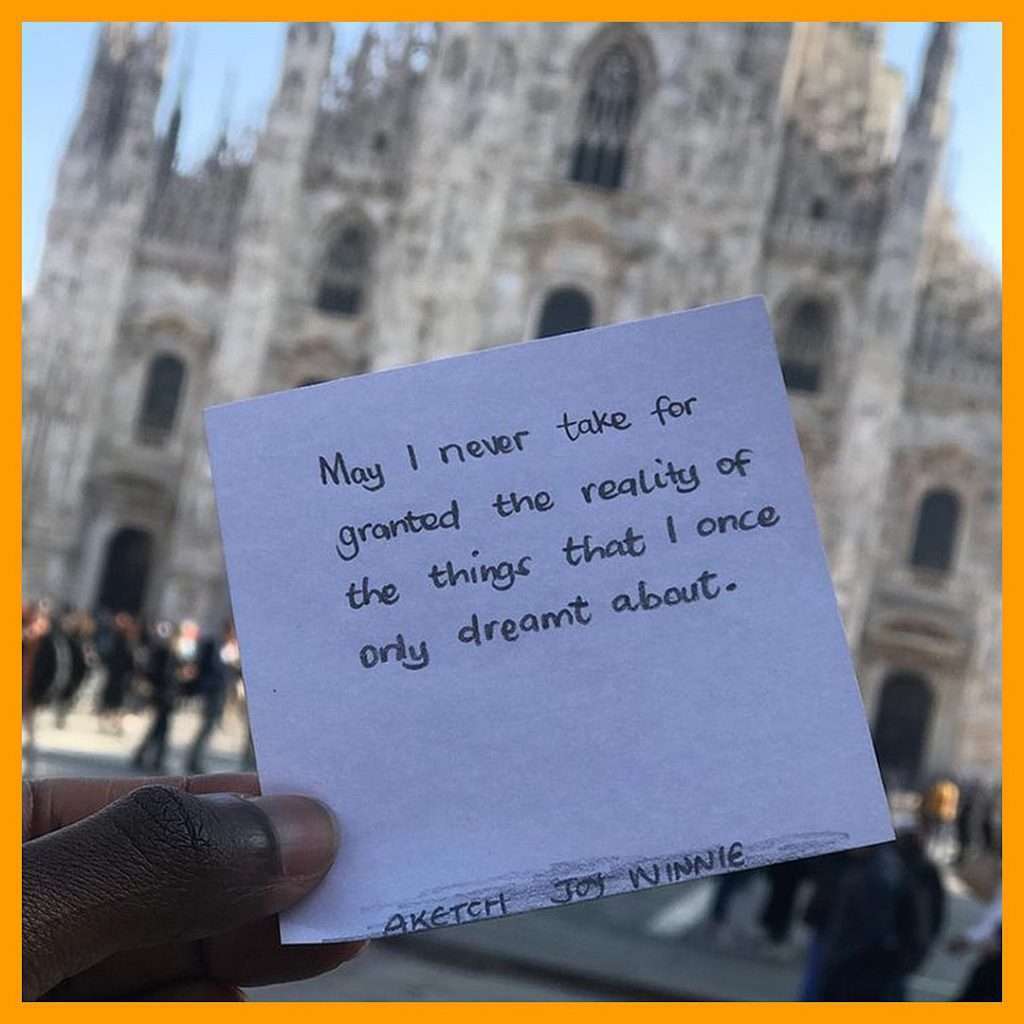 May I never take for
granted the reality of
the things that I once
only dreamt about.
AKETCH JOY WINNIE